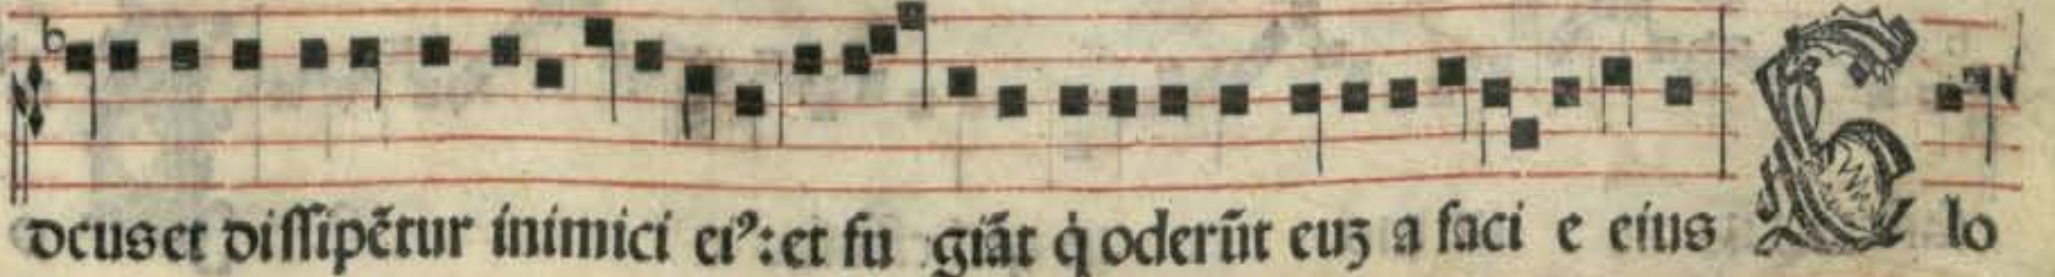 deus et dissipẽtur inimici ei⁹: et fu giãt q̇ oderũt euʒ a faci e eius Glo